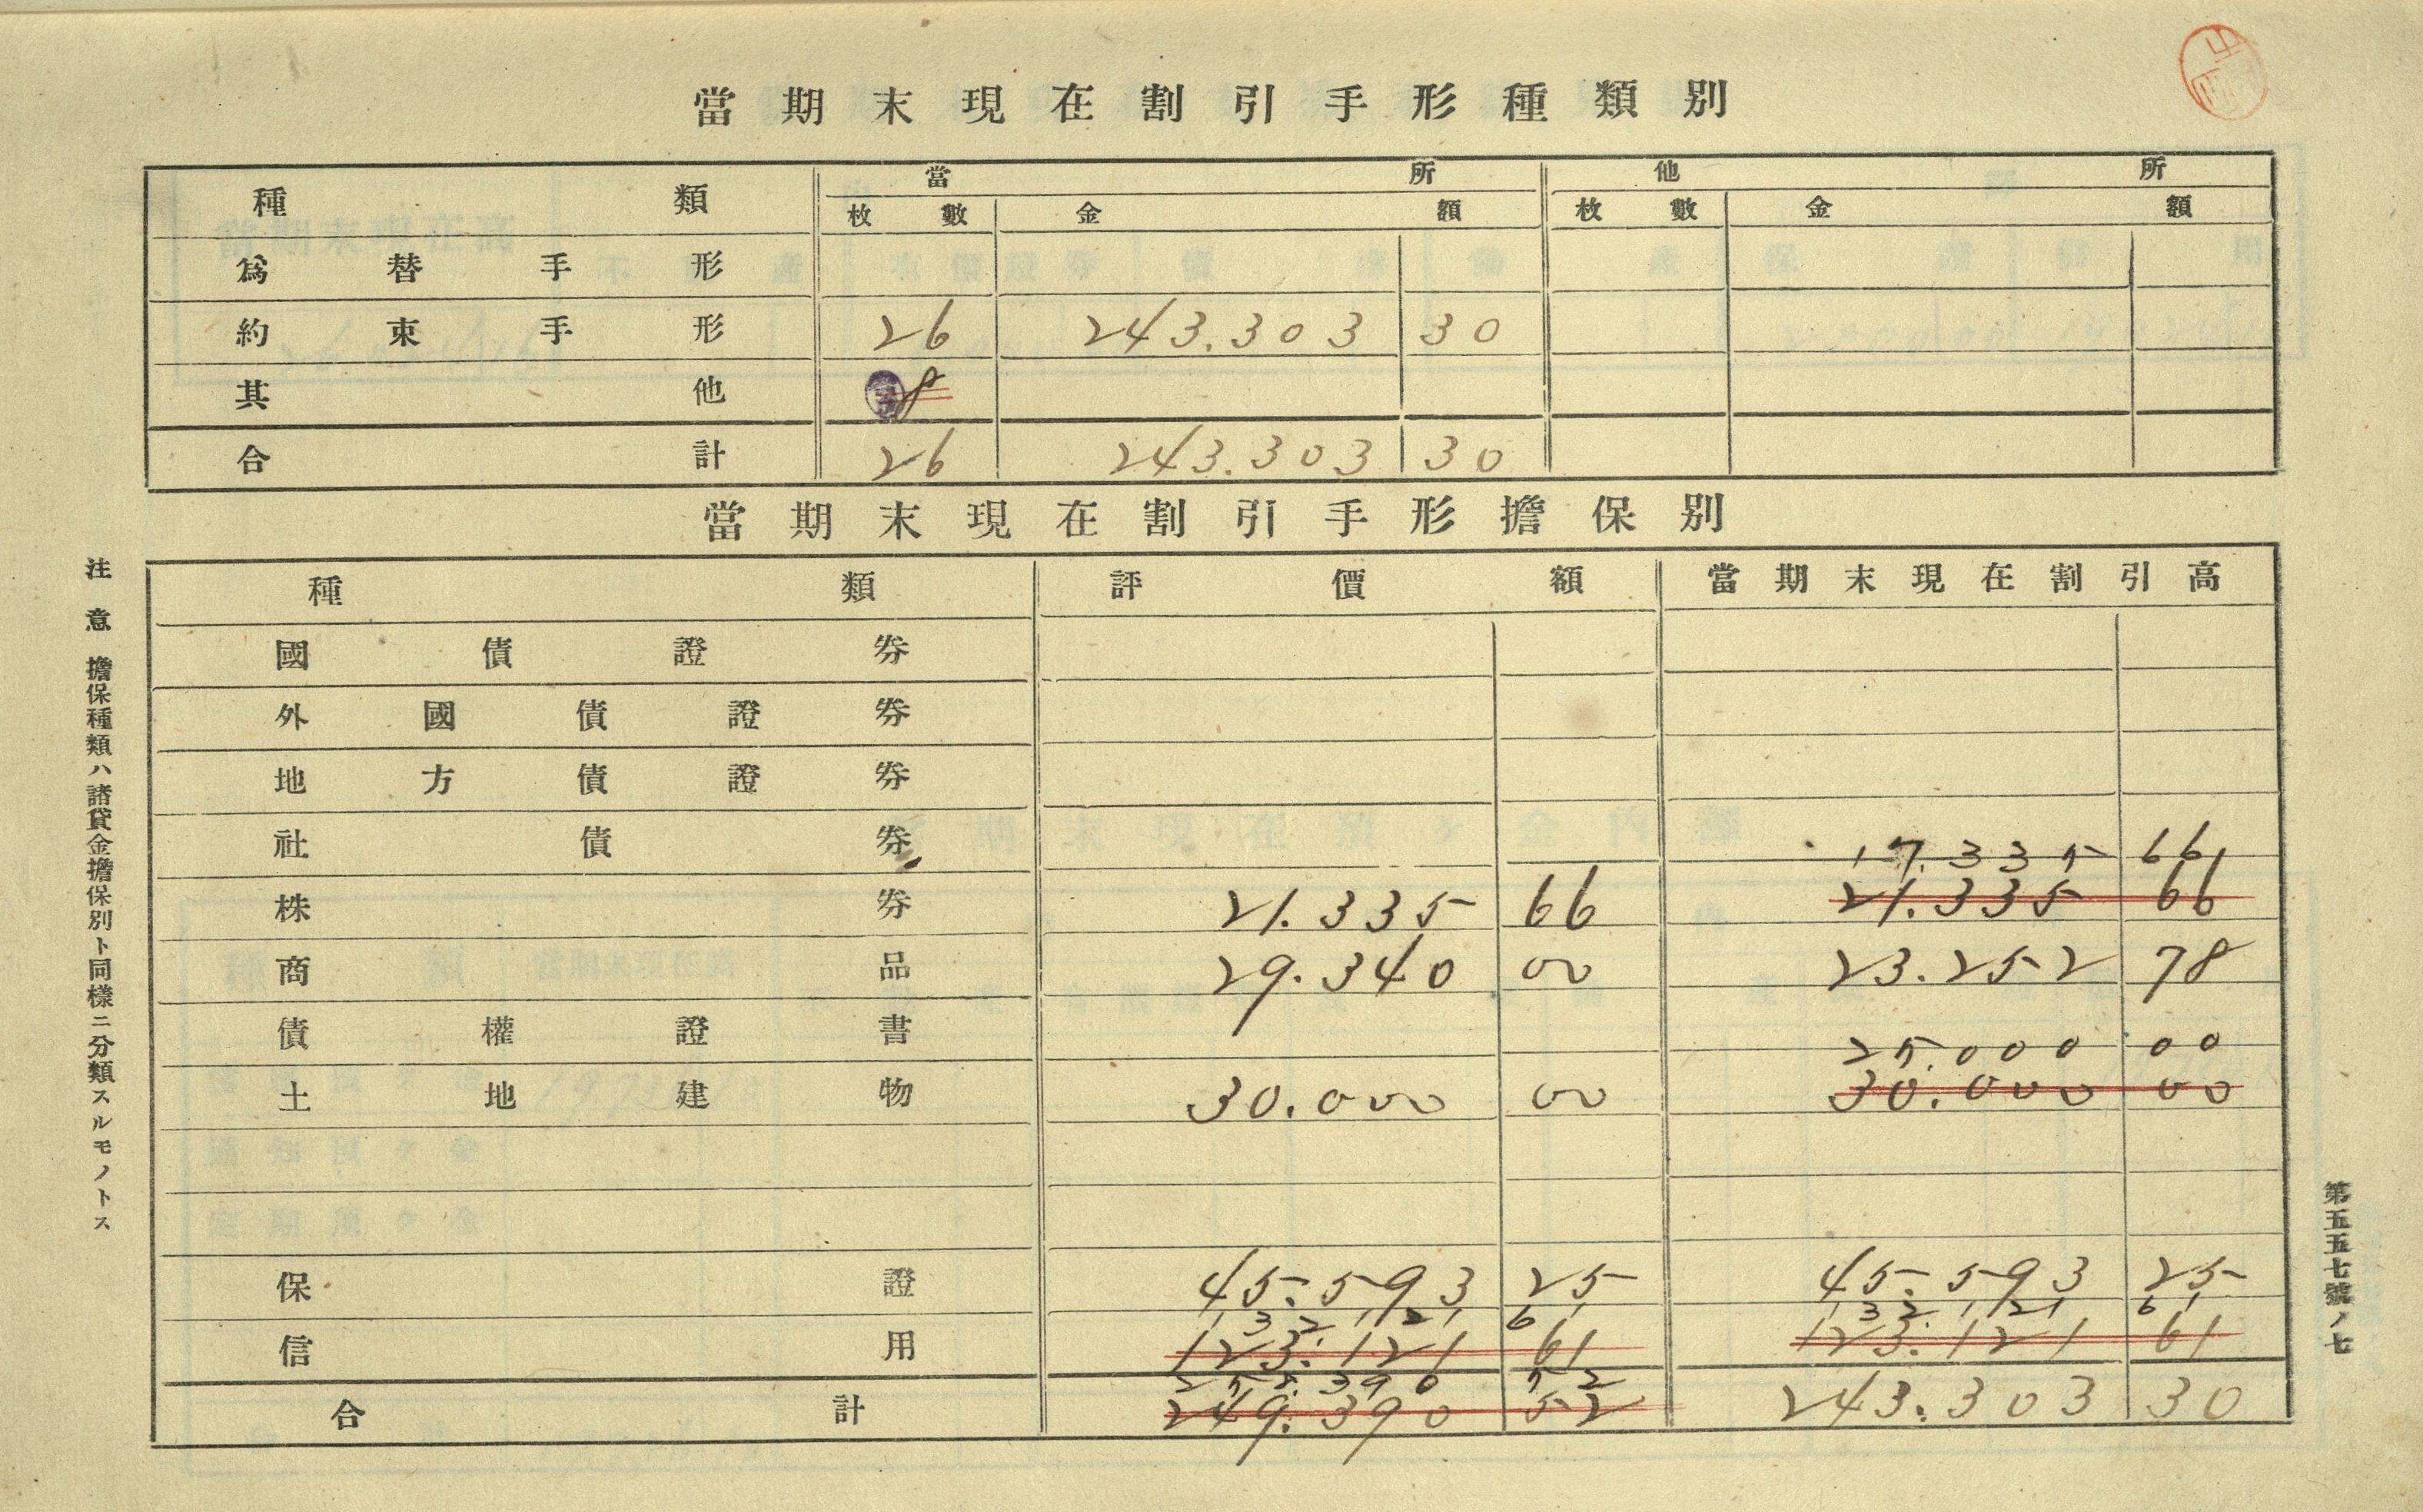 當期末現在割引手形種類別
種類 當所 他所
枚數 金額 枚數 金額
爲替手形
約束手形 26 243.303 30
其他 8
合計 26 243.303 30
當期末現在割引手形擔保別
種類 評價額 當期末現在割引高
國債證券
外國債證券
地方債證券
社債券
17.335 66
株券 21.335 66 21.335 66
商品 29.340 00 23.252 78
債權證書
25.000 00
土地建物 30.000 00 30.000 00
保證 45.593 25 45.593 25
132.121 61 132.121 61
信用 123.121 61 123.121 61
258.390 52
合計 249.390 52 243.303 30
注意 擔保種類ハ諸貸金擔保別ト同樣ニ分類スルモノトス
第五五七號ノ七